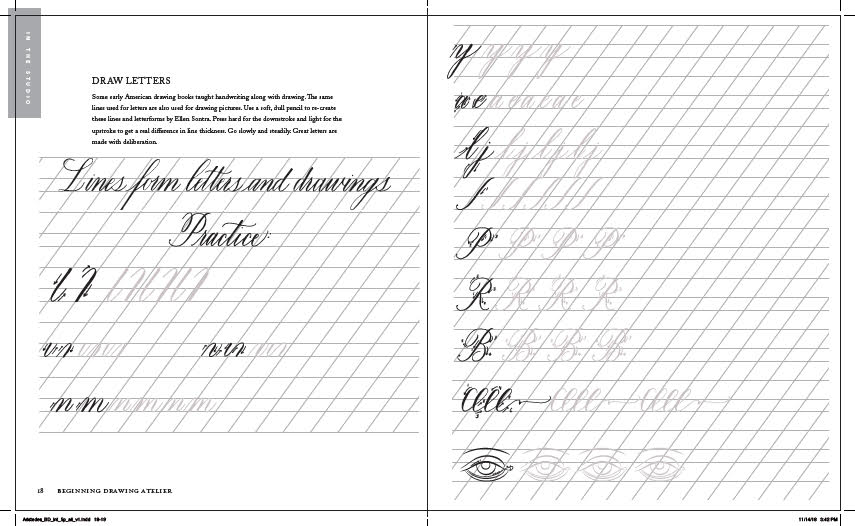 IN THE STUDIO
DRAW LETTERS
Some early American drawing books taught handwriting along with drawing. The same
lines used for letters are also used for drawing pictures. Use a soft, dull pencil to re-create
these lines and letterforms by Ellen Sontra. Press hard for the downstroke and light for the
upstroke to get a real difference in line thickness. Go slowly and steadily. Great letters are
made with deliberation.
Lines form letters and drawings
Practice:
m m
18 BEGINNING DRAWING ATELIER
y y y y
P P P P
R R R R
B B B B
11/14/18 3:42 PM